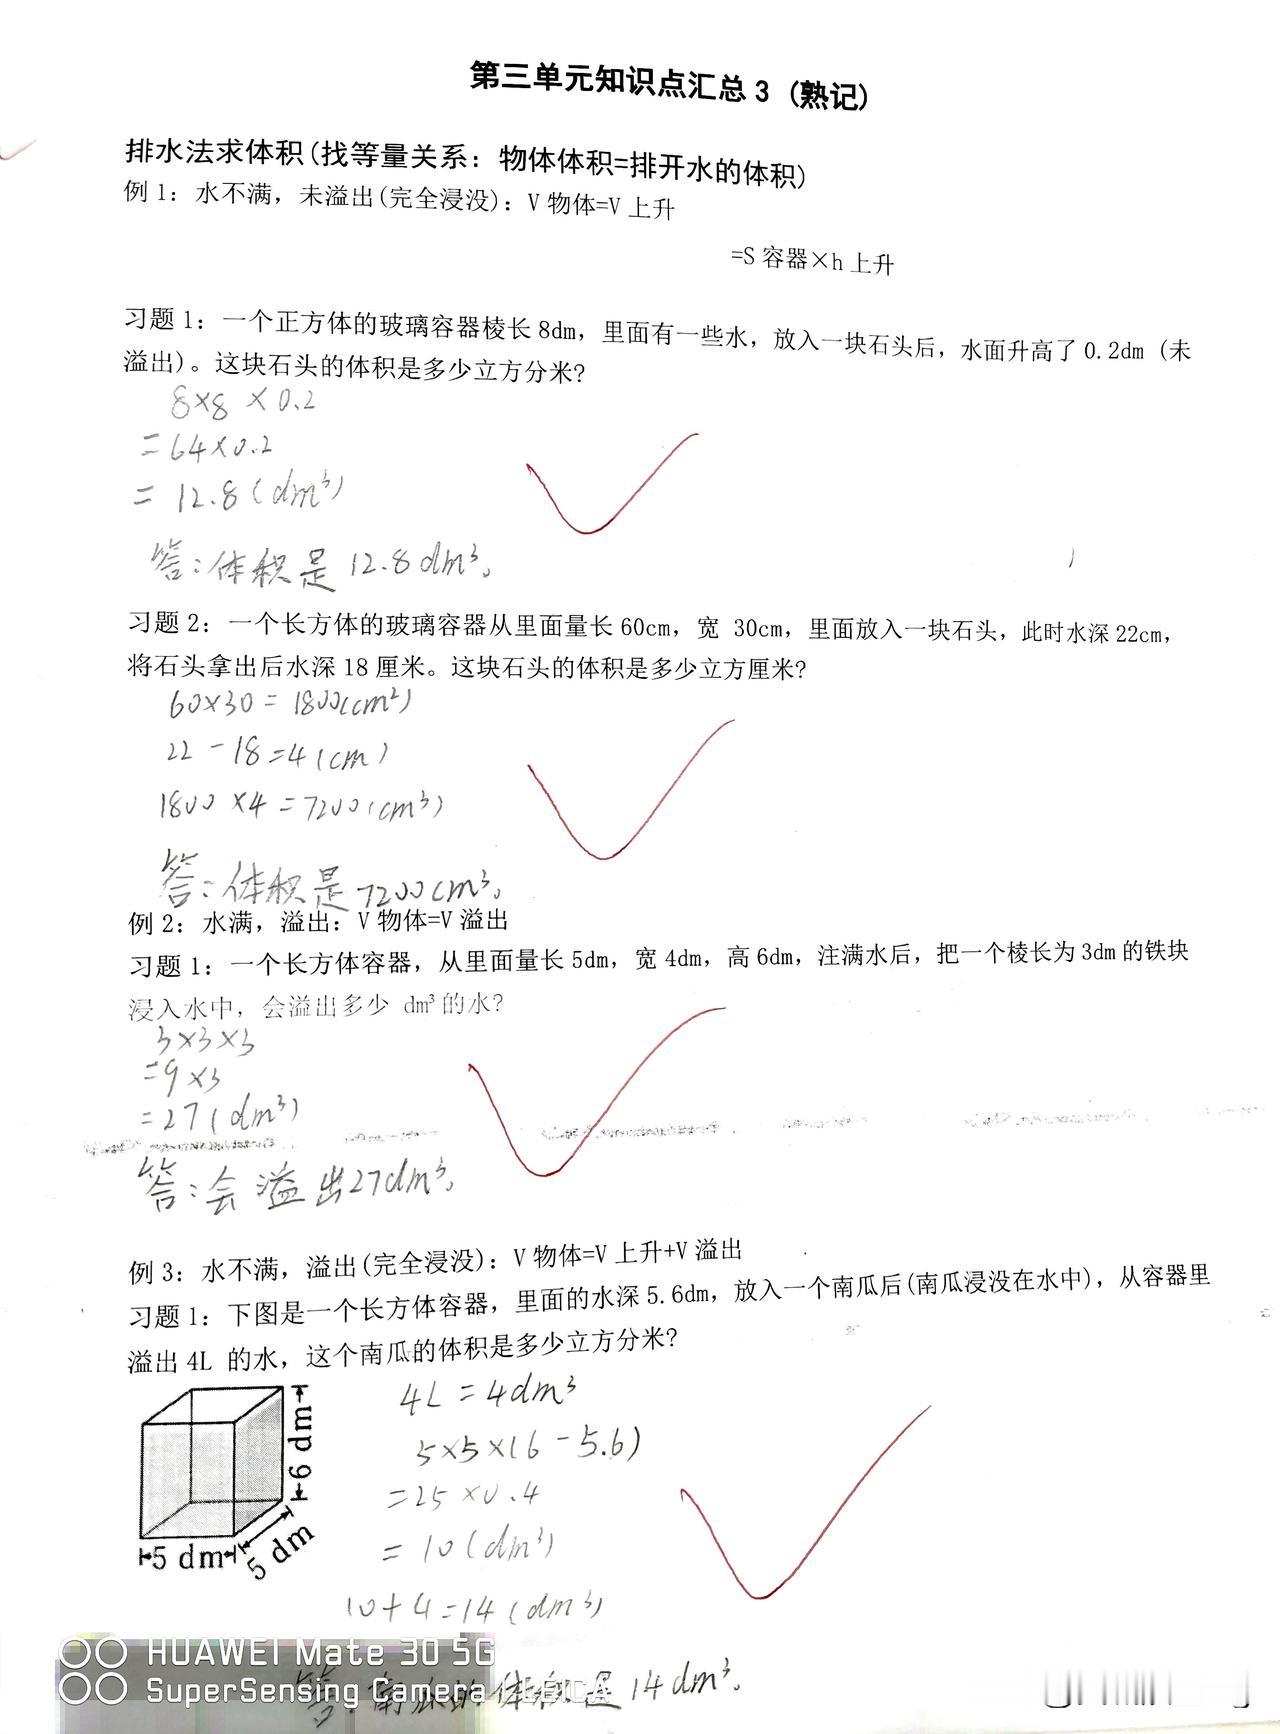 第三单元知识点汇总3 (熟记)
排水法求体积(找等量关系: 物体体积=排开水的体积)
例1: 水不满, 未溢出(完全浸没): V物体=V上升
=S容器×h上升
习题1: 一个正方体的玻璃容器棱长8dm, 里面有一些水, 放入一块石头后, 水面升高了0.2dm (未
溢出)。这块石头的体积是多少立方分米?
8×8×0.2
=64×0.2
=12.8(dm³)
答:体积是12.8dm³。
习题2: 一个长方体的玻璃容器从里面量长60cm, 宽 30cm, 里面放入一块石头, 此时水深22cm,
将石头拿出后水深18厘米。这块石头的体积是多少立方厘米?
60×30=1800(cm²)
22-18=4(cm)
1800×4=7200(cm³)
答:体积是7200cm³。
例2: 水满, 溢出: V物体=V溢出
习题1: 一个长方体容器, 从里面量长5dm, 宽4dm, 高6dm, 注满水后, 把一个棱长为3dm的铁块
浸入水中, 会溢出多少 dm³的水?
3×3×3
=9×3
=27(dm³)
答:会溢出27dm³。
例3: 水不满, 溢出(完全浸没): V物体=V上升+V溢出
习题1: 下图是一个长方体容器, 里面的水深5.6dm, 放入一个南瓜后(南瓜浸没在水中), 从容器里
溢出4L 的水, 这个南瓜的体积是多少立方分米?
6 dm
5 dm
5 dm
4L=4dm³
5×5×(6-5.6)
=25×0.4
=10(dm³)
10+4=14(dm³)
答:南瓜的体积是14dm³。
HUAWEI Mate 30 5G
SuperSensing Camera | LEICA